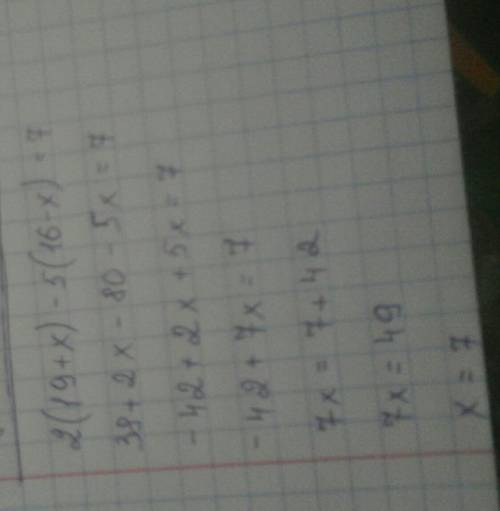 2(19+x)-5(16-x)=7
38+2x-80-5x=7
-42+2x+5x=7
-42+7x=7
7x=7+42
7x=49
x=7